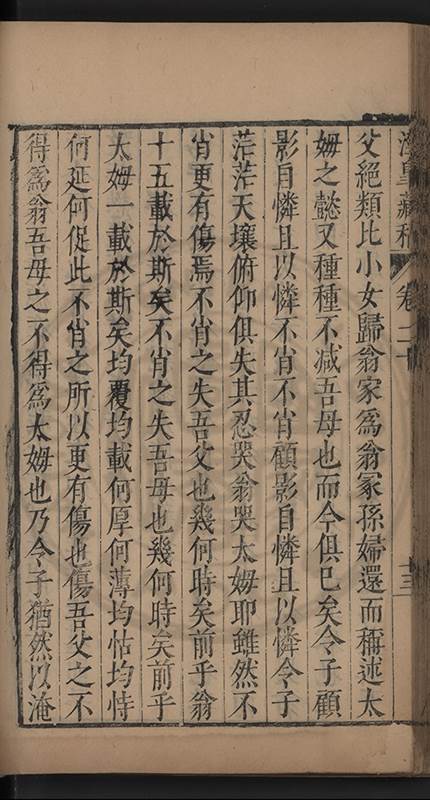 卷二十
十三
父絕類比小女歸翁家為翁冢孫婦還而稱述太
姆之懿又種種不減吾母也而今俱已矣令子顧
影自憐且以憐不肖不肖顧影自憐且以憐令子
茫茫天壤俯仰俱失其忍哭翁哭太姆耶雖然不
肖更有傷焉不肖之失吾父也幾何時矣前乎翁
十五載於斯矣不肖之失吾母也幾何時矣前乎
太姆一載於斯矣均覆均載何厚何薄均怙均恃
何延何促此不肖之所以更有傷也傷吾父之不
得為翁吾母之不得為太姆也乃令子猶然以淹